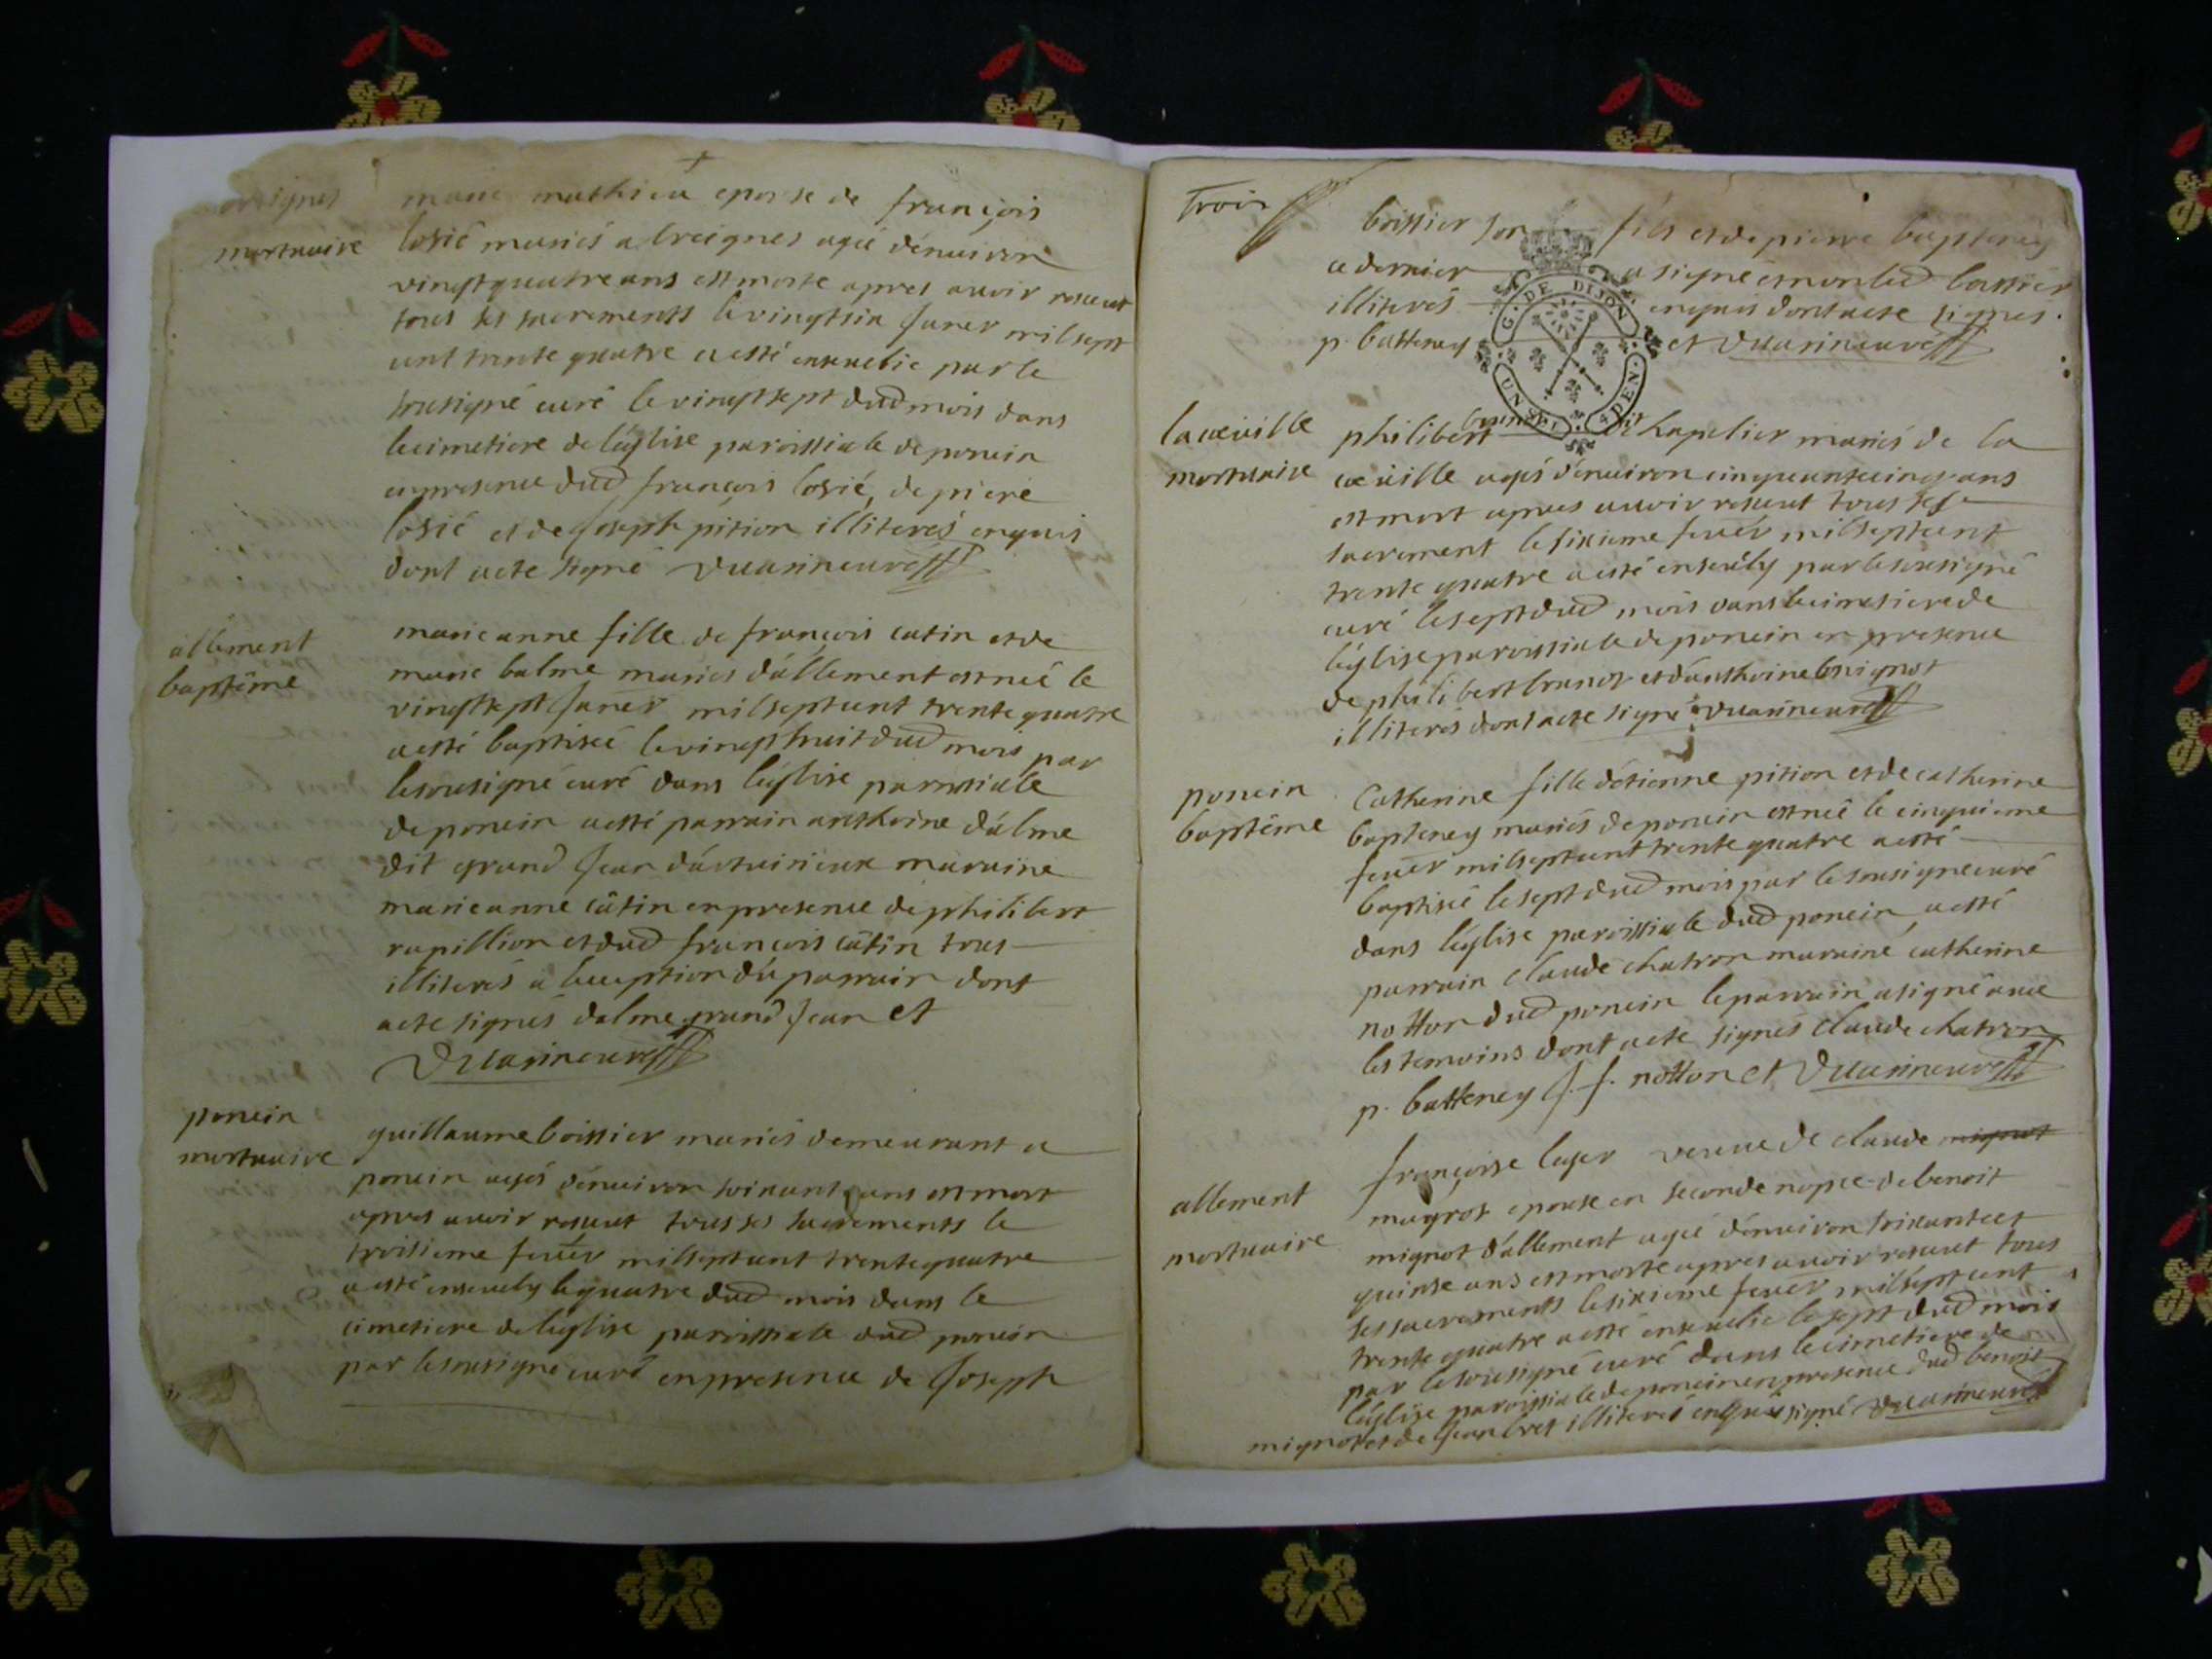 mortuaire
marie mathieu epouse de françois
losié mariés a breignes agée dénuiron
vingtquatre ans est morte apres auoir receut
tous ses sacrements le vingtsix Januer mil sept
cent trente quatre a esté enseuelie par le
sousigné curé le vingtsept dud mois dans
le cimetiere de léglise paroissiale de poncin
en presence dud françois losié, de piere
losié et de Joseph pition illiterés enquis
dont acte signé Duarin curé
allement
baptême
marie anne fille de françois catin et de
marie balme mariés dállement est neé le
vingtsept Januer mil sept cent trente quatre
a esté baptiseé le vingt huit dud mois par
le sousigné curé dans léglise paroissiale
de poncin a esté parrain anthoine dálme
dit grand Jean dáctuirieux maraine
marie anne câtin en presence de philibert
rapillion et dud françois câtin tous
illiterés a lexception du parrain dont
acte signés dalme grand Jean et
Duarin curé
poncin
mortuaire
guillaume boissier mariés demeurant a
poncin agés dénuiron soixante ans est mort
apres auoir receut tous ses sacrements le
troisieme feuer mil sept cent trente quatre
a esté enseuely le quatre dud mois dans le
cimetiere de léglise paroissiale dud poncin
par le sousigné curé en presence de Joseph
Trois
boissier son fils et de pierre bapteney
ce dernier a signé et non led boissier
illiterés enquis dont acte signés.
p. batteney et Duarin curé
G. DE DIJON
DEN.
la cueuille
mortuaire
philibert brunet dit chapelier mariés de la
cueuille agés dénuiron cinquante cinq ans
est mort apres auoir receut tous ses
sacrement le sixieme feuer mil sept cent
trente quatre a esté enseuely par le sousigné
curé le sept dud mois dans le cimetiere de
léglise paroissiale de poncin en presence
de philibert brunet et dánthoine
illiterés dont acte signé Duarin curé
poncin
baptême
Catherine fille détienne pition et de catherine
bapteney mariés de poncin est neé le cinquieme
feuer mil sept cent trente quatre a esté
baptiseé le sept dud mois par le sousigné curé
dans léglise paroissiale dud poncin a esté
parrain claude chatron maraine catherine
notton dud poncin le parrain a signé auec
les temoins dont acte signés claude chatron
p. batteney J. f. notton et Duarin curé
allement
mortuaire
françoise leger veuue de claude mignot
magrot epouse en seconde nopce de benoit
mignot dállement agée dénuiron soixante et
quinse ans est morte apres auoir receut tous
ses sacrements le sixieme feuer mil sept cent
trente quatre a esté enseuelie le sept dud mois
par le sousigné curé dans le cimetiere de
léglise paroissiale de poncin en presence dud benoit
mignot et de Jean bret illiterés enquis signé Duarin curé